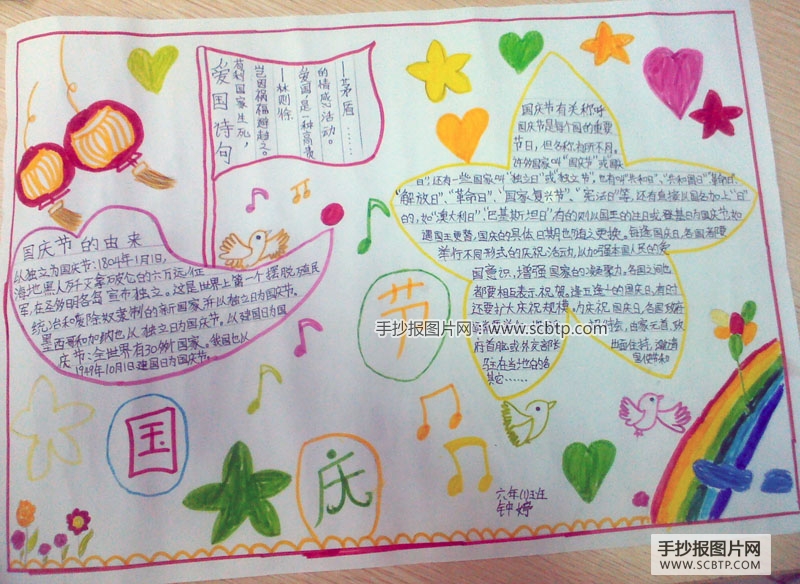 爱国诗句
苟利国家生死,
岂因祸福避趋之。
——林则徐
爱国,是一种高贵
的情感活动。
——茅盾……
国庆节的由来
从独立为国庆节:1804年1月1日,
海地黑人歼灭拿破仑的六万远征
军,在圣多明各岛宣布独立。这是世界上第一个摆脱殖民
统治和废除奴隶制的新国家并以独立日为国庆节。
墨西哥和加纳也从独立日为国庆节。从建国日为国
庆节:全世界有30多个国家。我国也从
1949年10月1日建国日为国庆节。
国庆节有关称呼
国庆节是每个国的重要
节日,但名称有所不同。
许外国家叫“国庆节”或国庆
日,还有一些国家叫“独立日”或“独立节”,也有叫“共和日”、“共和国日”、“革命日”、
“解放日”、“革命日”、“国家复兴节”、“宪法日”等,还有直接以国名加上“日”
的,如“澳大利日”,“巴基斯坦日”,有的则以国王的生日或登基日为国庆节,如
遇国王更替,国庆的具体日期也随之更换。每逢国庆日,各国都要
举行不同形式的庆祝活动,以加强本国人民的爱
国意识,增强国家的凝聚力。各国之间也
都要相互表示祝贺。逢五逢十的国庆日,有的
还要扩大庆祝规模。为庆祝国庆日,各国政府
国家元首,政
府首脑或外交部
出面主持,邀请
驻在当地的各
其它……
国
庆
节
六年(1)班
钟婷
手抄报图片网——www.scbtp.com
手抄报图片网
WWW.SCBTP.COM